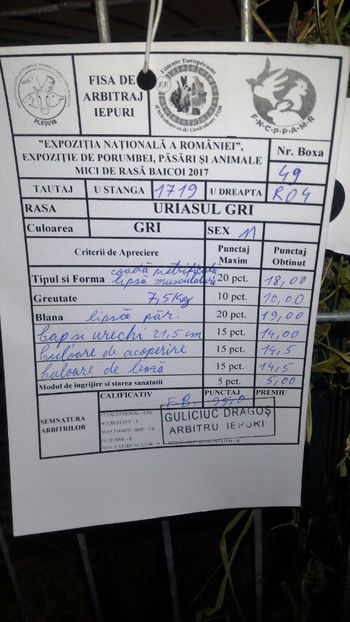 PLEȘUVA
FISA DE
ARBITRAJ
IEPURI
Entente Européenne
EE
F-N-C-P-P-A-M-R
"EXPOZIȚIA NAȚIONALĂ A ROMÂNIEI",
EXPOZIȚIE DE PORUMBEI, PĂSĂRI ȘI ANIMALE
MICI DE RASĂ BAICOI 2017
Nr. Boxa
49
TAUTAJ U STANGA 1719 U DREAPTA R04
RASA URIASUL GRI
Culoarea GRI SEX M
Criterii de Apreciere Punctaj Maxim Punctaj Obtinut
coadă pietrificată
Tipul si Forma lipsă musculatură 20 pct. 18,00
Greutate 7,5 Kg 10 pct. 10,00
Blana lipsă păr. 20 pct. 19,00
Cap si urechi 21,5 cm 15 pct. 14,00
Culoare de acoperire 15 pct. 14,5
Culoare de bază 15 pct. 14,5
Modul de ingrijire si starea sanatatii 5 pct. 5,00
SEMNATURA ARBITRILOR
CALIFICATIV PUNCTAJ PREMIU
F.B. 95,0
GULICIUC DRAGOȘ
ARBITRU IEPURI